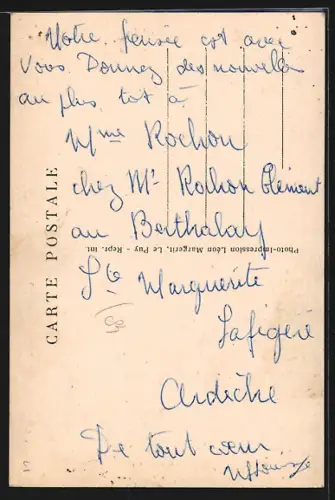 Notre pensée est avec
vous Donnez des nouvelles
au plus tôt à
Mme Rochon
chez Mr Rochon Clément
au Berthalay
Ste Marguerite
Lafigère
Ardèche
De tout cœur
CARTE POSTALE
Photo-Impression Léon Margerit, Le Puy - Repr. int.